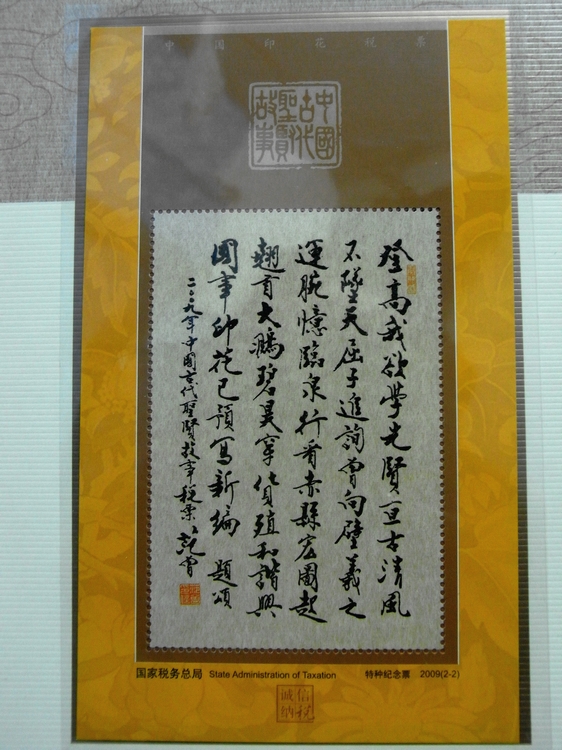 中国印花税票
中國古代聖賢故事
登高我欲學先賢亘古清風
不墜天屈子進詢曾向壁羲之
運腕憶臨泉行看赤縣宏圖起
翹首大鵬碧昊穿貨殖和諧興
國事印花已預寫新編 題頌
二〇〇九年中國古代聖賢故事稅票 范曾
国家税务总局 State Administration of Taxation 特种纪念票 2009(2-2)
诚信
纳税